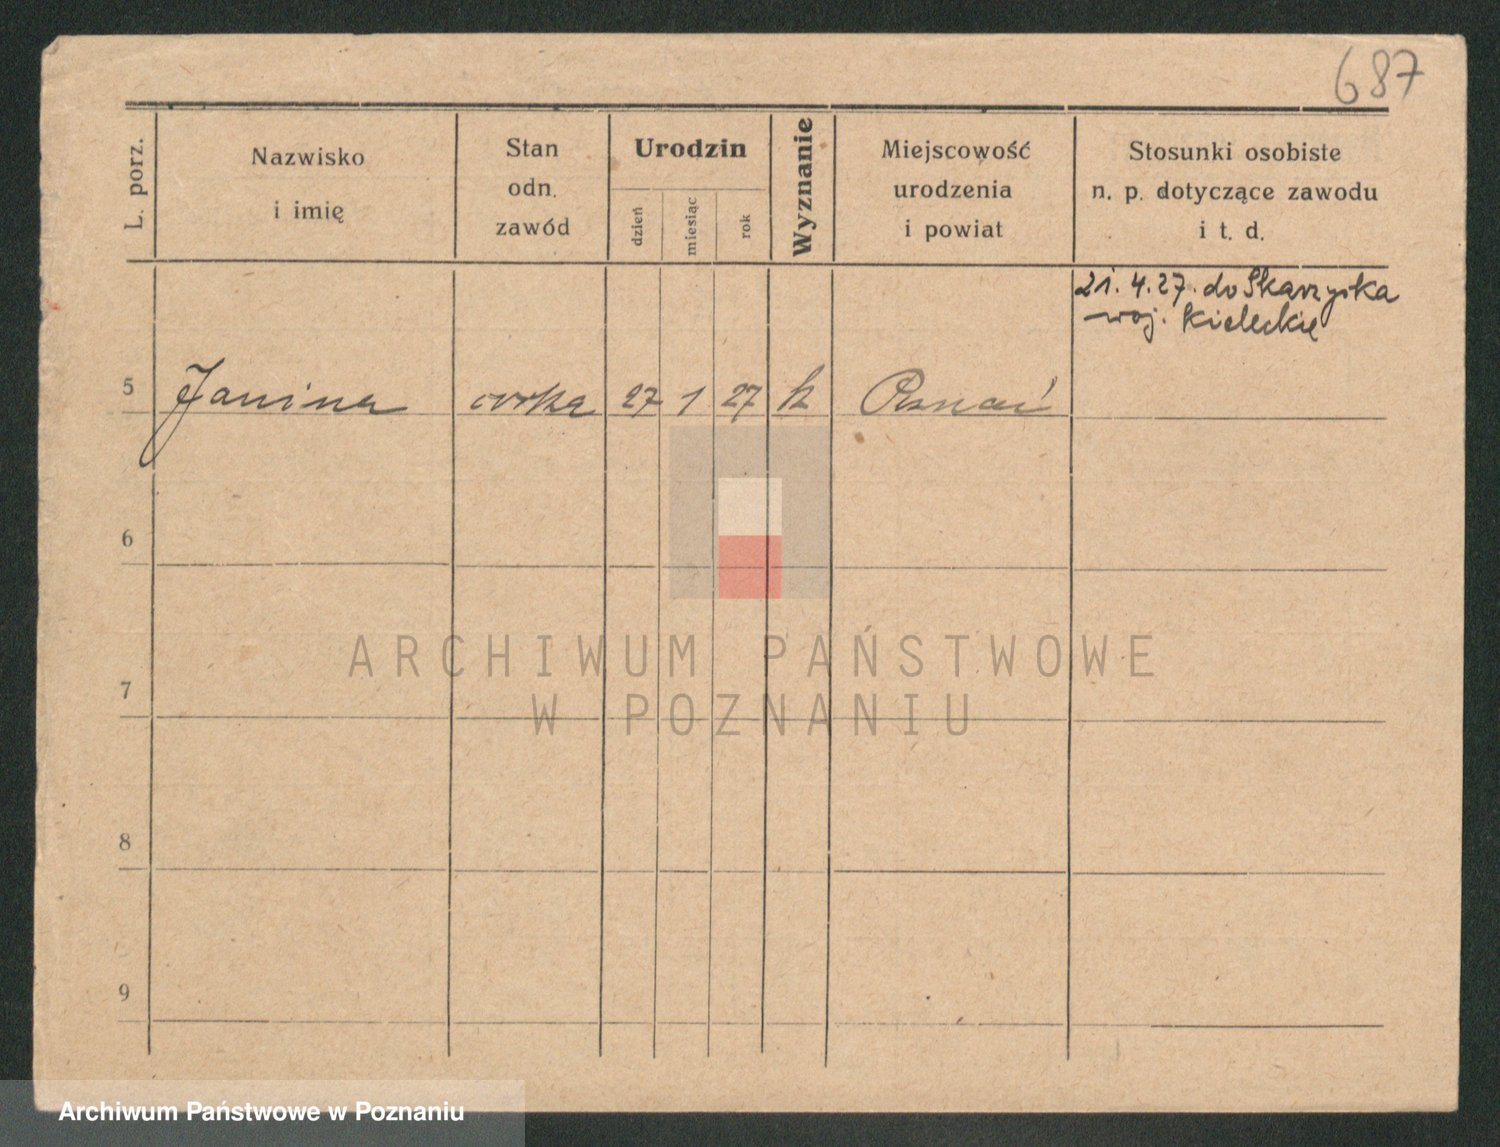 687
L. porz.
Nazwisko
i imię
Stan
odn.
zawód
Urodzin
dzień
miesiąc
rok
Wyznanie
Miejscowość
urodzenia
i powiat
Stosunki osobiste
n. p. dotyczące zawodu
i t. d.
21. 4. 27. do Skarzyska
woj. Kieleckie
5 Janina córka 27 1 27 k Poznań
6
7
8
9
ARCHIWUM PAŃSTWOWE
W POZNANIU
Archiwum Państwowe w Poznaniu